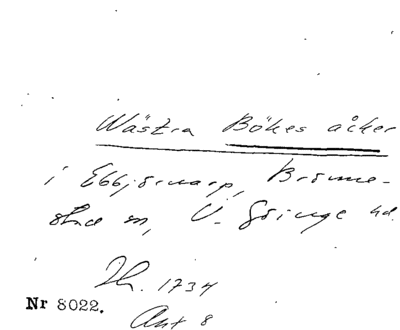 Wästra Bökes åker
i Ebbjörnarp, Brönne-
stad sn, V. Göinge hd.
Lh. 1734
Nr 8022.
Akt 8